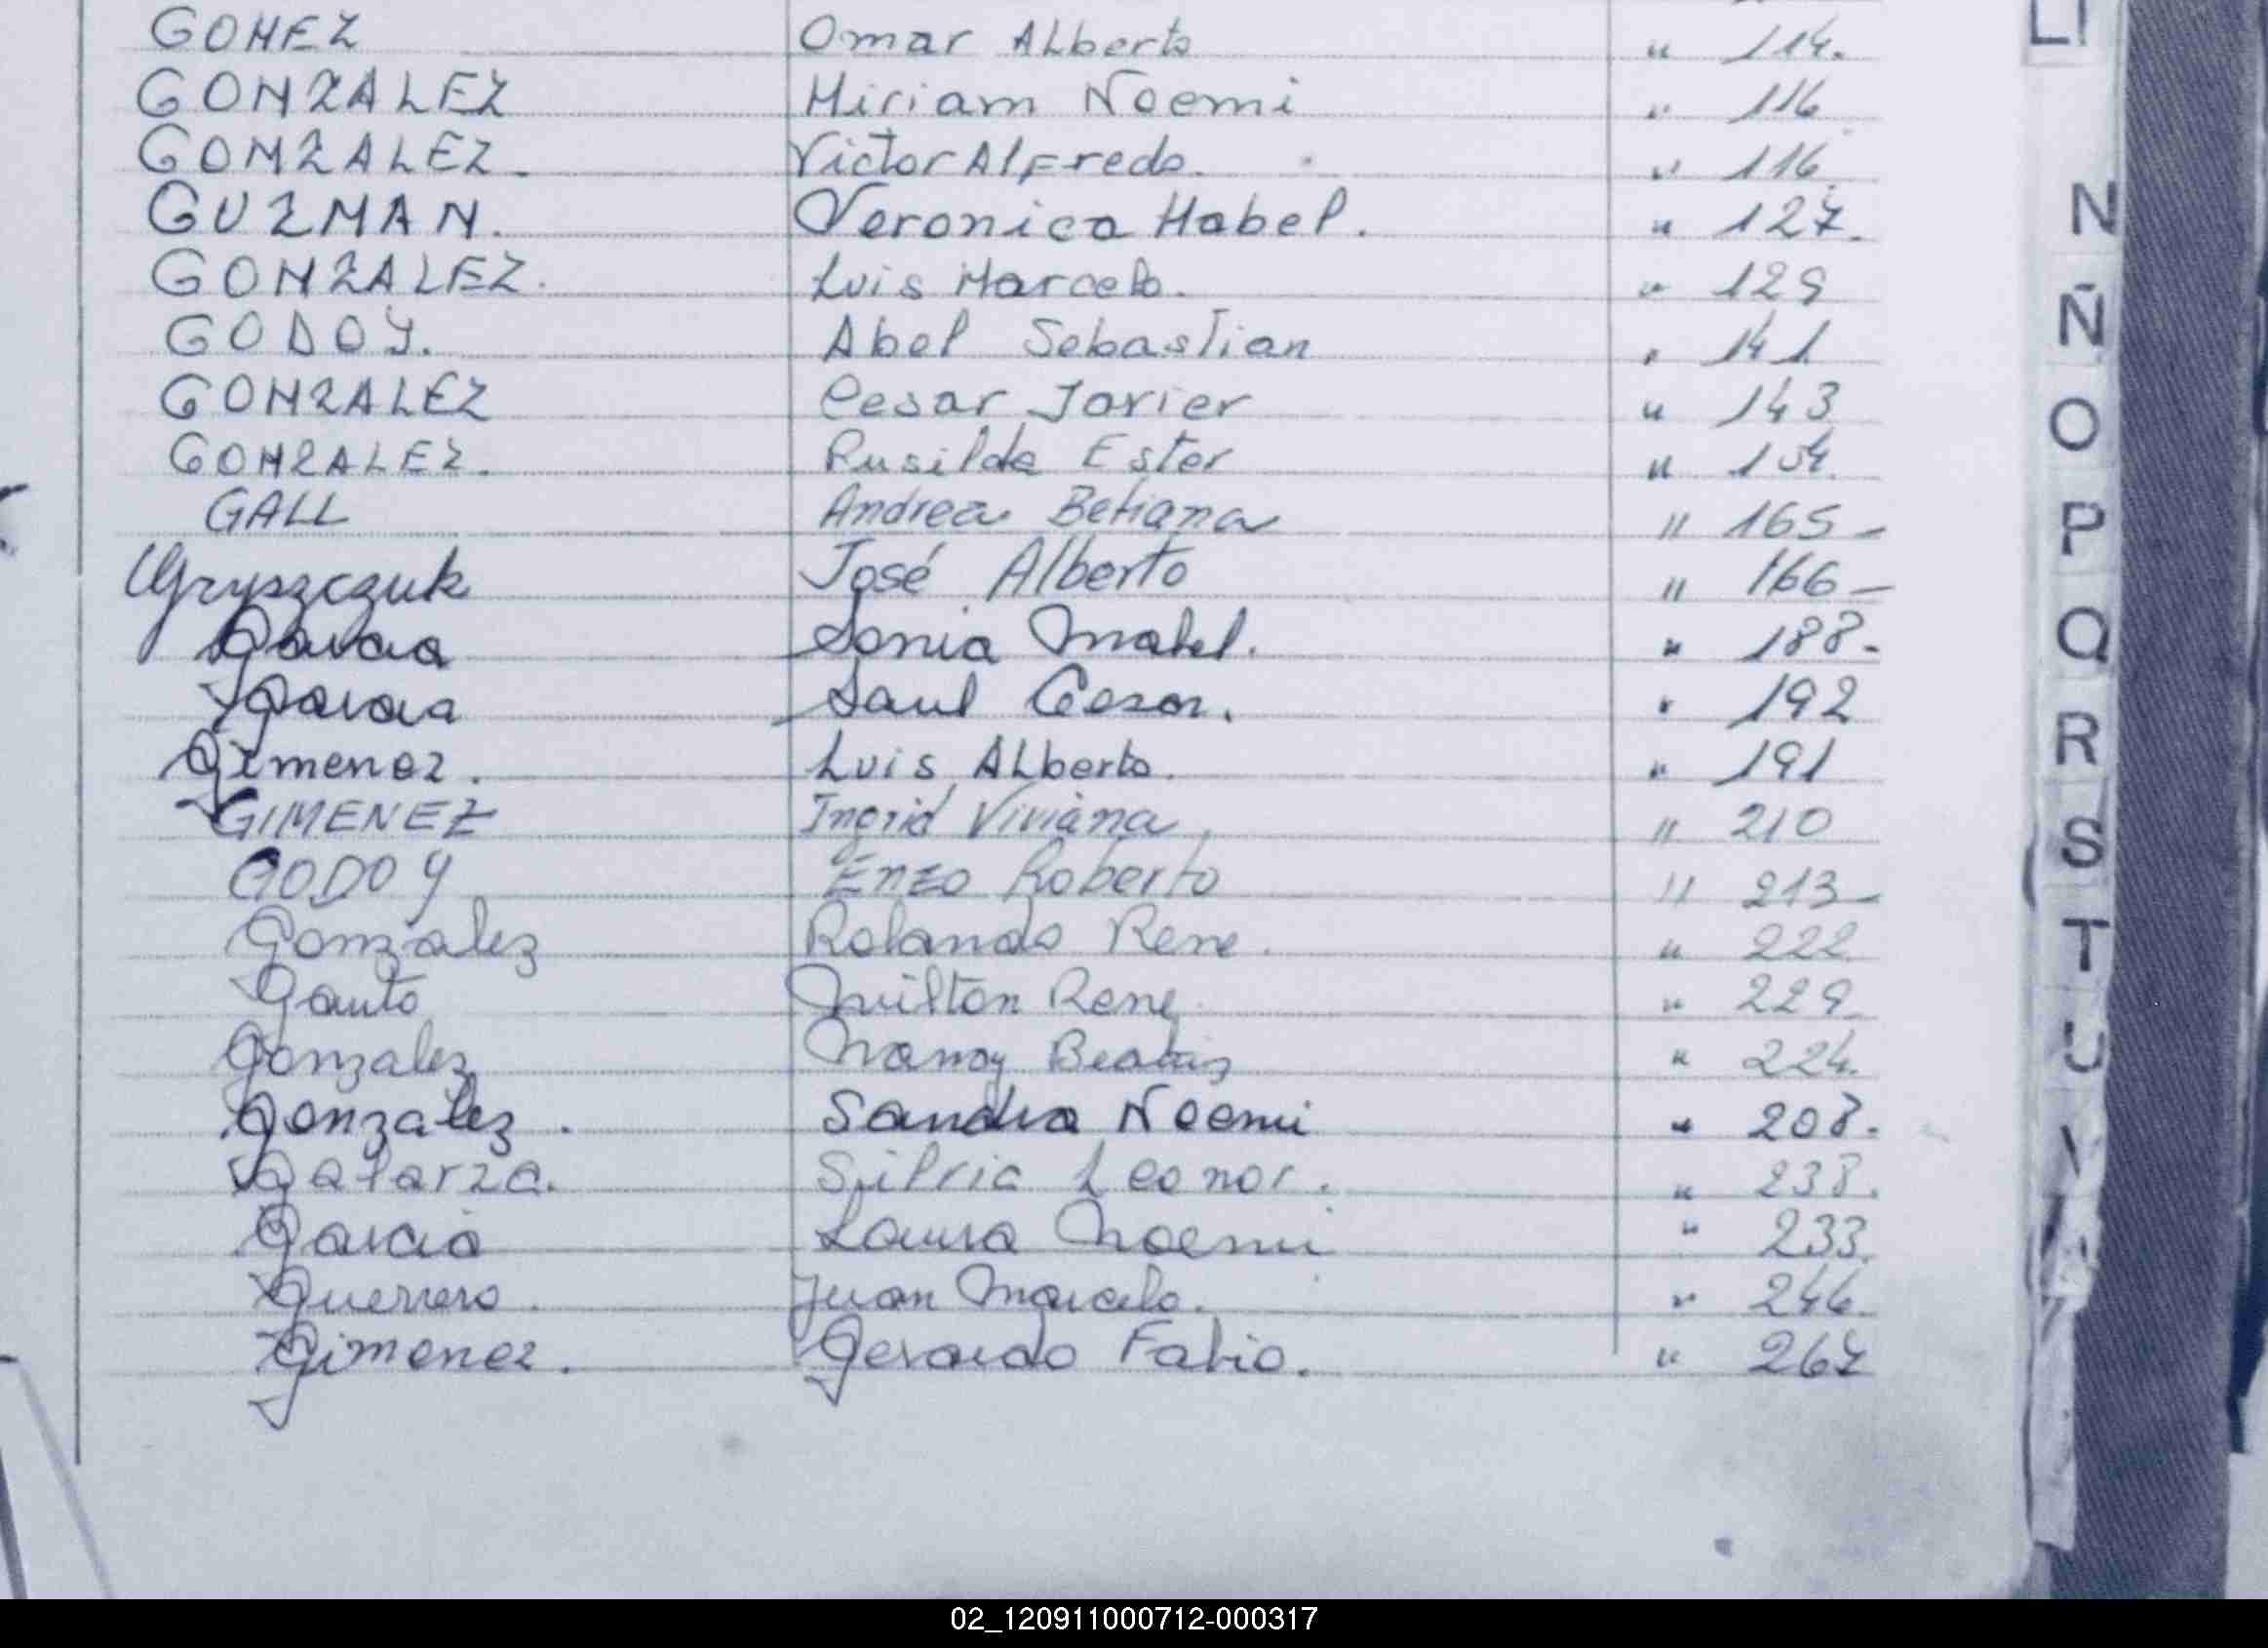 GOMEZ Omar ALberto " 114.
GONZALEZ Miriam Noemi " 116
GONZALEZ. Victor AlFredo. " 116
GUZMAN. Veronica Mabel. " 127.
GONZALEZ. Luis Marcelo. " 129
GODOY. Abel Sebastian " 141
GONZALEZ Cesar Javier " 143
GONZALEZ. Rusilda Ester " 154.
GALL Andrea Betiana " 165-
Gryszczuk José Alberto " 166-
Garcia Sonia Mabel. " 188-
Garcia Saul Cesar. " 192
Gimenez. Luis ALberto. " 191
GIMENEZ Ingrid Viviana " 210
GODOY Enzo Roberto " 213-
Gonzalez Rolando Rene. " 222
Gauto Milton Rene " 229
Gonzalez Nancy Beatriz " 224.
Gonzalez. Sandra Noemi " 208.
Galarza. Silvia Leonor. " 238.
Garcia Laura Noemi " 233
Guerrero. Juan Marcelo. " 246.
Gimenez. Gerardo Fabio. " 267
N
Ñ
O
P
Q
R
S
T
U
02_120911000712-000317